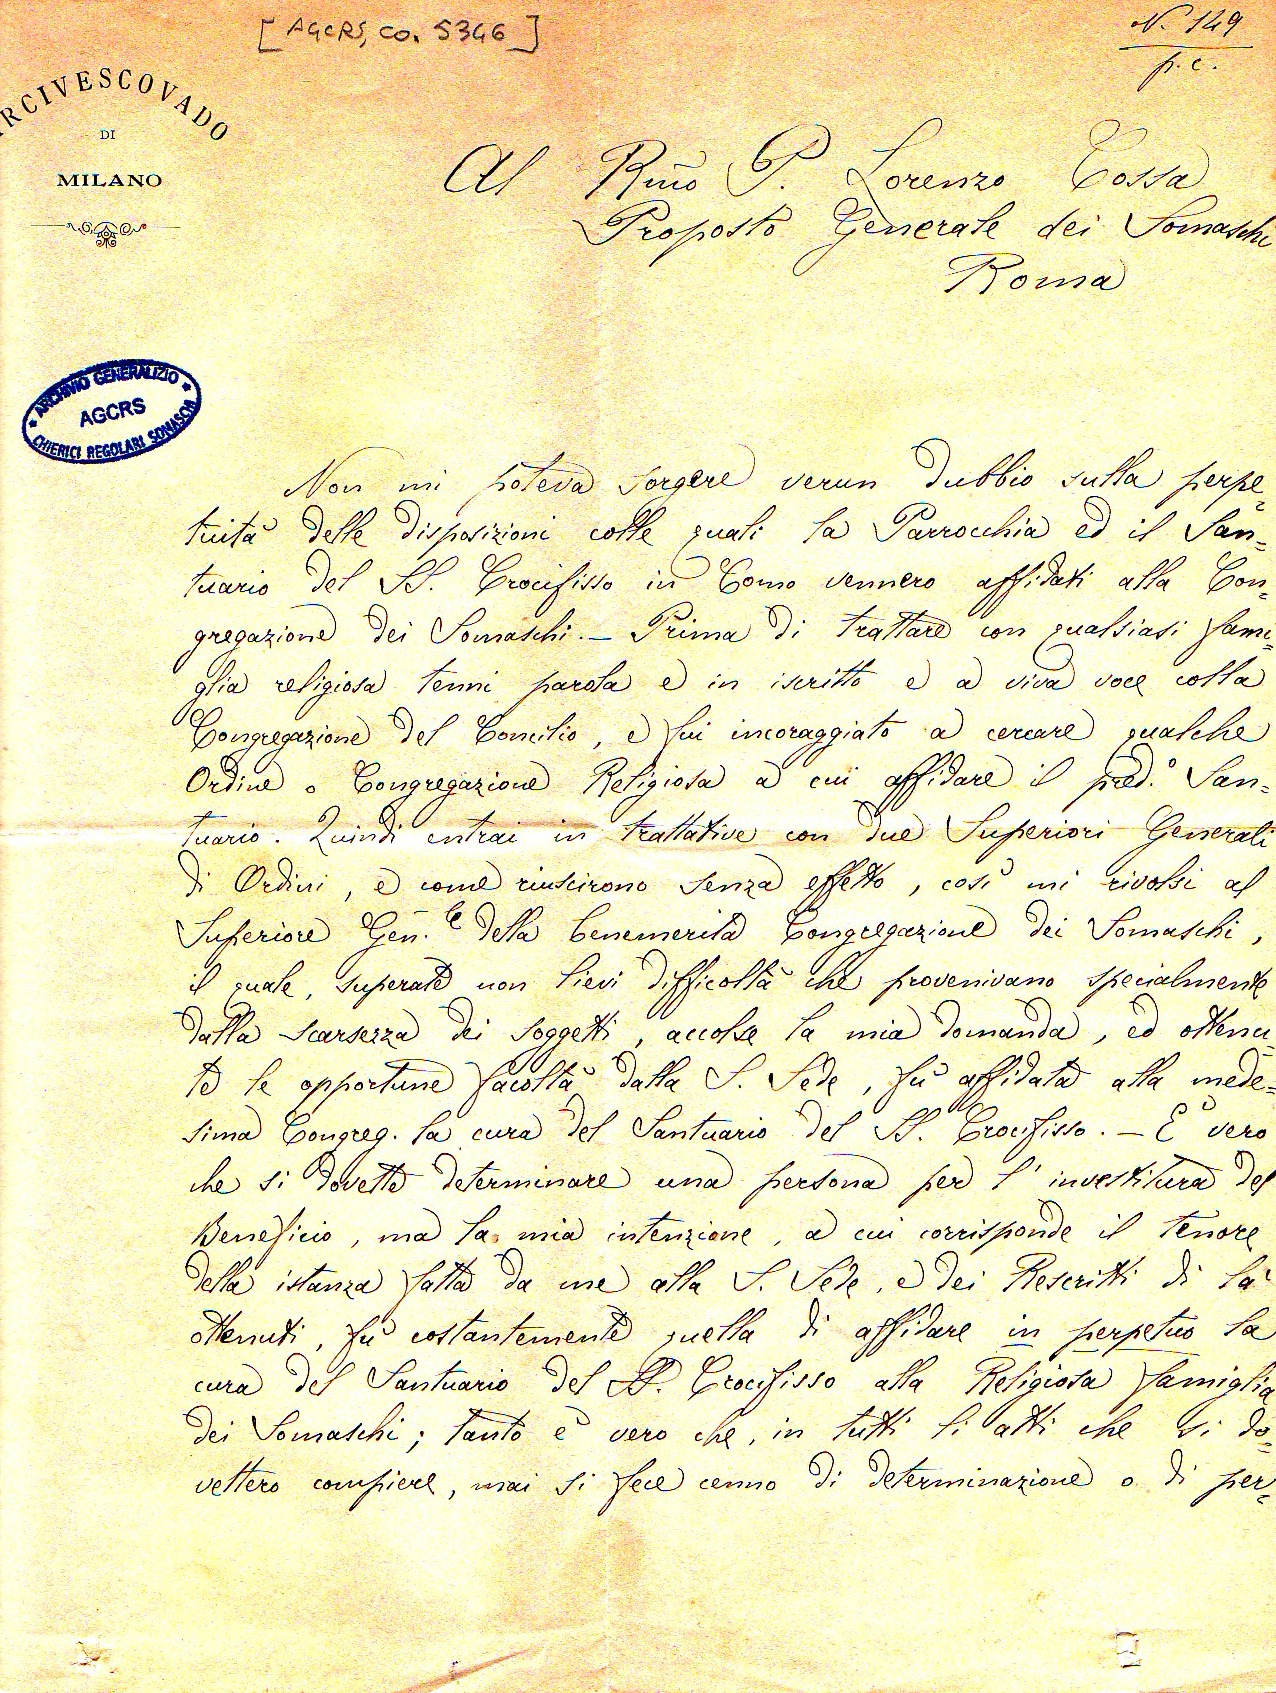 [AGCRS, co. 5346]
N. 149
p. c.
ARCIVESCOVADO
DI
MILANO
Al Rmo P. Lorenzo Cossa
Proposto Generale dei Somaschi
Roma
ARCHIVIO GENERALIZIO
AGCRS
CHIERICI REGOLARI SOMASCHI
Non mi poteva sorgere verun dubbio sulla perpe=
tuità delle disposizioni colle quali la Parrocchia ed il San=
tuario del SS. Crocifisso in Como vennero affidati alla Con=
gregazione dei Somaschi. — Prima di trattare con qualsiasi fami=
glia religiosa tenni parola e in iscritto e a viva voce colla
Congregazione del Concilio, e fui incoraggiato a cercare qualche
Ordine o Congregazione Religiosa a cui affidare il pred.° San=
tuario. Quindi entrai in trattative con due Superiori Generali
di Ordini, e come riuscirono senza effetto, così mi rivolsi al
Superiore Gen.le della benemerita Congregazione dei Somaschi,
il quale, superate non lievi difficoltà che provenivano specialmente
dalla scarsezza dei soggetti, accolse la mia domanda, ed ottenu=
te le opportune facoltà dalla S. Sede, fù affidata alla mede=
sima Congreg. la cura del Santuario del SS. Crocifisso. — È vero
che si dovette determinare una persona per l'investitura del
Beneficio, ma la mia intenzione, a cui corrisponde il tenore
della istanza fatta da me alla S. Sede, e dei Rescritti di là
ottenuti, fù costantemente quella di affidare in perpetuo la
cura del Santuario del SS. Crocifisso alla Religiosa famiglia
dei Somaschi; tanto è vero che, in tutti li atti che si do=
vettero compiere, mai si fece cenno di determinazione o di per=